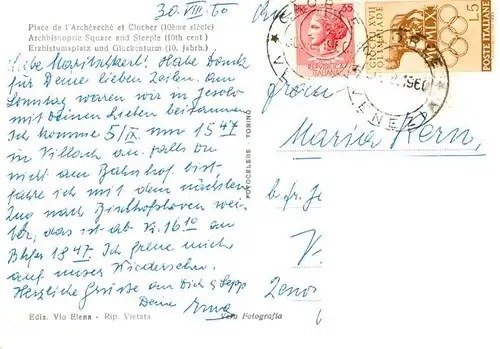 30. VIII. 60
Place de l'Archévreché et Clocher (10ème siècle)
Archbishopic Square and Steeple (10th cent.)
Erzbistumsplatz und Glockenturm (10. Jahrh.)
Liebe Maritschkerl! Habe Dank
für Deine lieben Zeilen. Am
Sonntag waren wir in Jesolo
mit Deinen Lieben beisammen
Ich komme 5/IX um 15 47
in Villach an. Falls Du
nicht am Bahnhof bist,
fahre ich mit dem nächsten
Zug nach Bischofshoven wei-
ter, das ist ab V. 16 10 an
Bhfer 18 47. Ich freue mich
auf unser Wiedersehen.
Herzliche Grüsse an Dich & Sepp
Deine Erna
Ediz. Vio Elena - Rip. Vietata
Vera Fotografia
FOTOCELERE TORINO
REPUBBLICA
ITALIANA
GIOCHI DELLA XVII
OLIMPIADE
ROMA MCMLX
L. 5
POSTE ITALIANE
1960
VENEZIA
Maria Kern,
V.